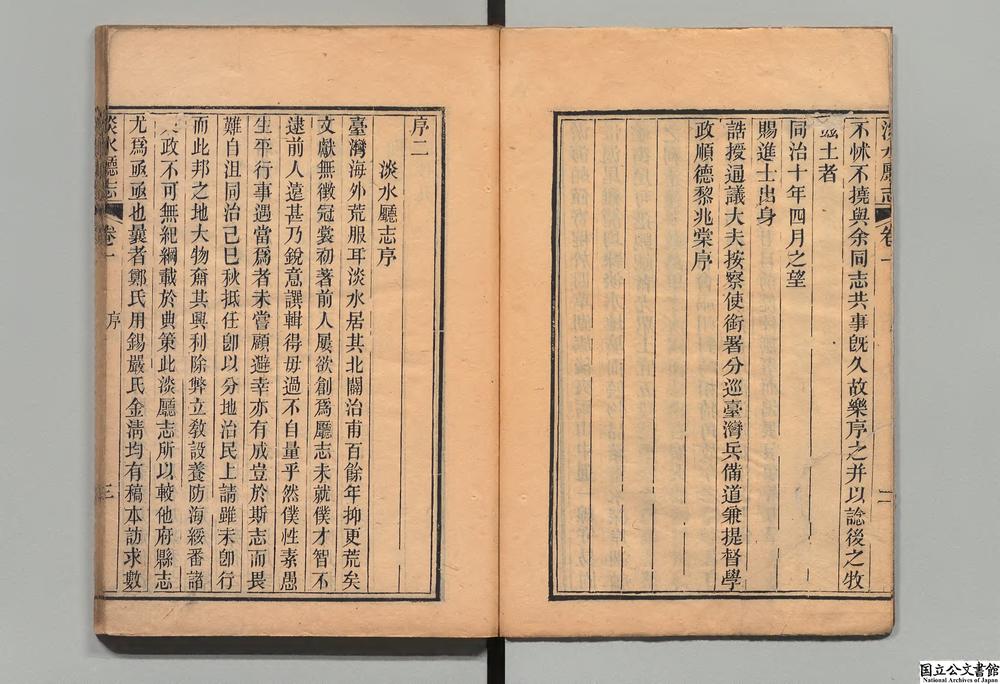 淡水廳志 卷一 二
不怵不撓與余同志共事旣久故樂序之幷以諗後之牧
茲土者
同治十年四月之望
賜進士出身
誥授通議大夫按察使銜署分巡臺灣兵備道兼提督學
政順德黎兆棠序
序二
淡水廳志序
臺灣海外荒服耳淡水居其北關治甫百餘年抑更荒矣
文獻無徵冠裳初著前人屢欲創爲廳志未就僕才智不
逮前人遠甚乃銳意譔輯得毋過不自量乎然僕性素愚
生平行事遇當爲者未嘗顧避幸亦有成豈於斯志而畏
難自沮同治己巳秋抵任卽以分地治民上請雖未卽行
而此邦之地大物奫其興利除弊立敎設養防海綏番諸
政不可無紀綱載於典策此淡廳志所以較他府縣志
尤爲亟亟也曩者鄭氏用錫嚴氏金淸均有稿本訪求數
淡水廳志 卷一 序 三
国立公文書館
National Archives of Japan